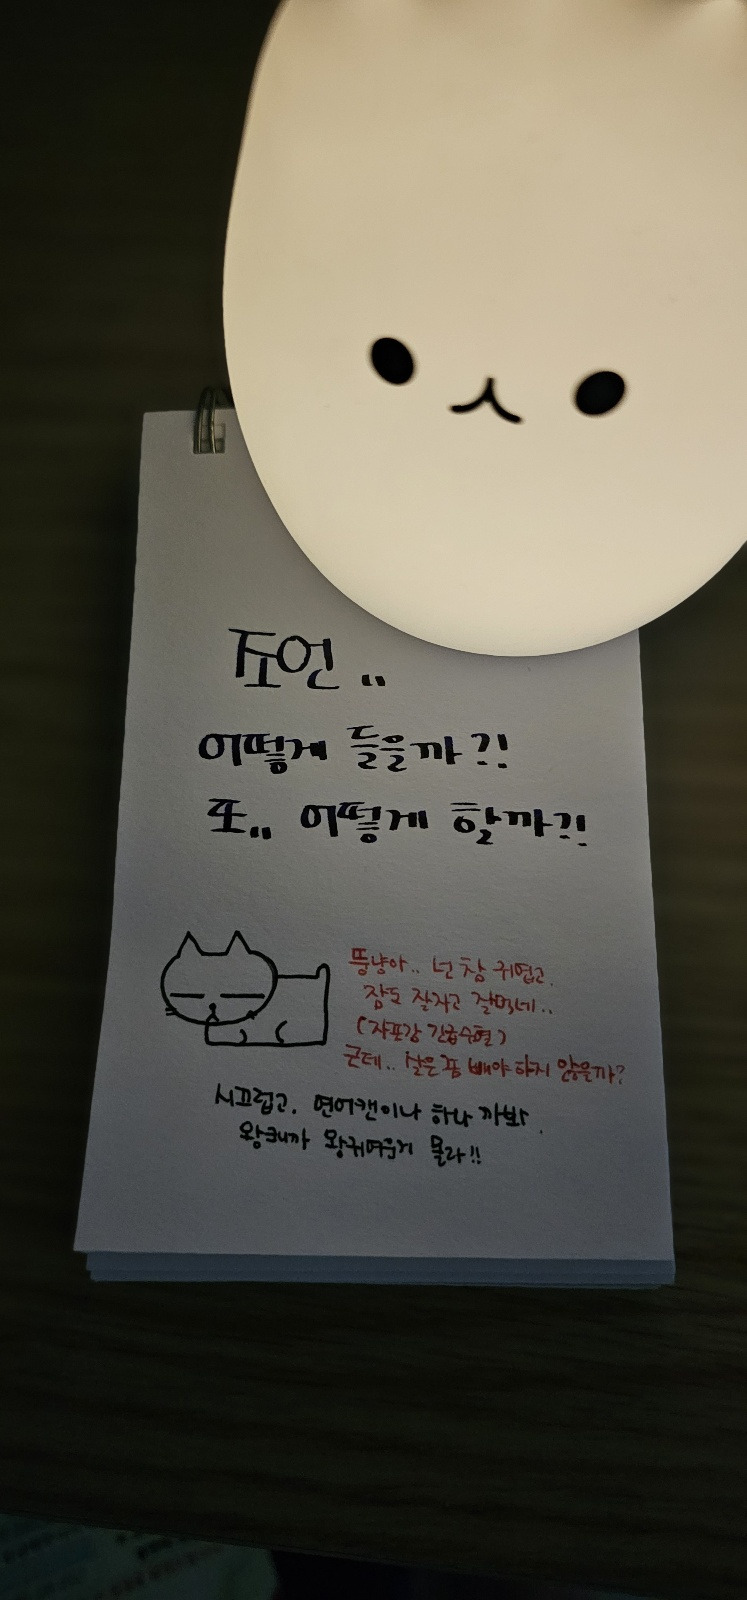 조언..
어떻게 들을까?!
또.. 어떻게 할까?!
뚱냥아.. 넌 참 귀엽고
잠도 잘자고 잘먹네..
(자포강 긴급수혈)
근데.. 살은 좀 빼야 하지 않을까?
시끄럽고. 연어캔이나 하나 까봐.
왕크니까 왕귀여운거 몰라!!